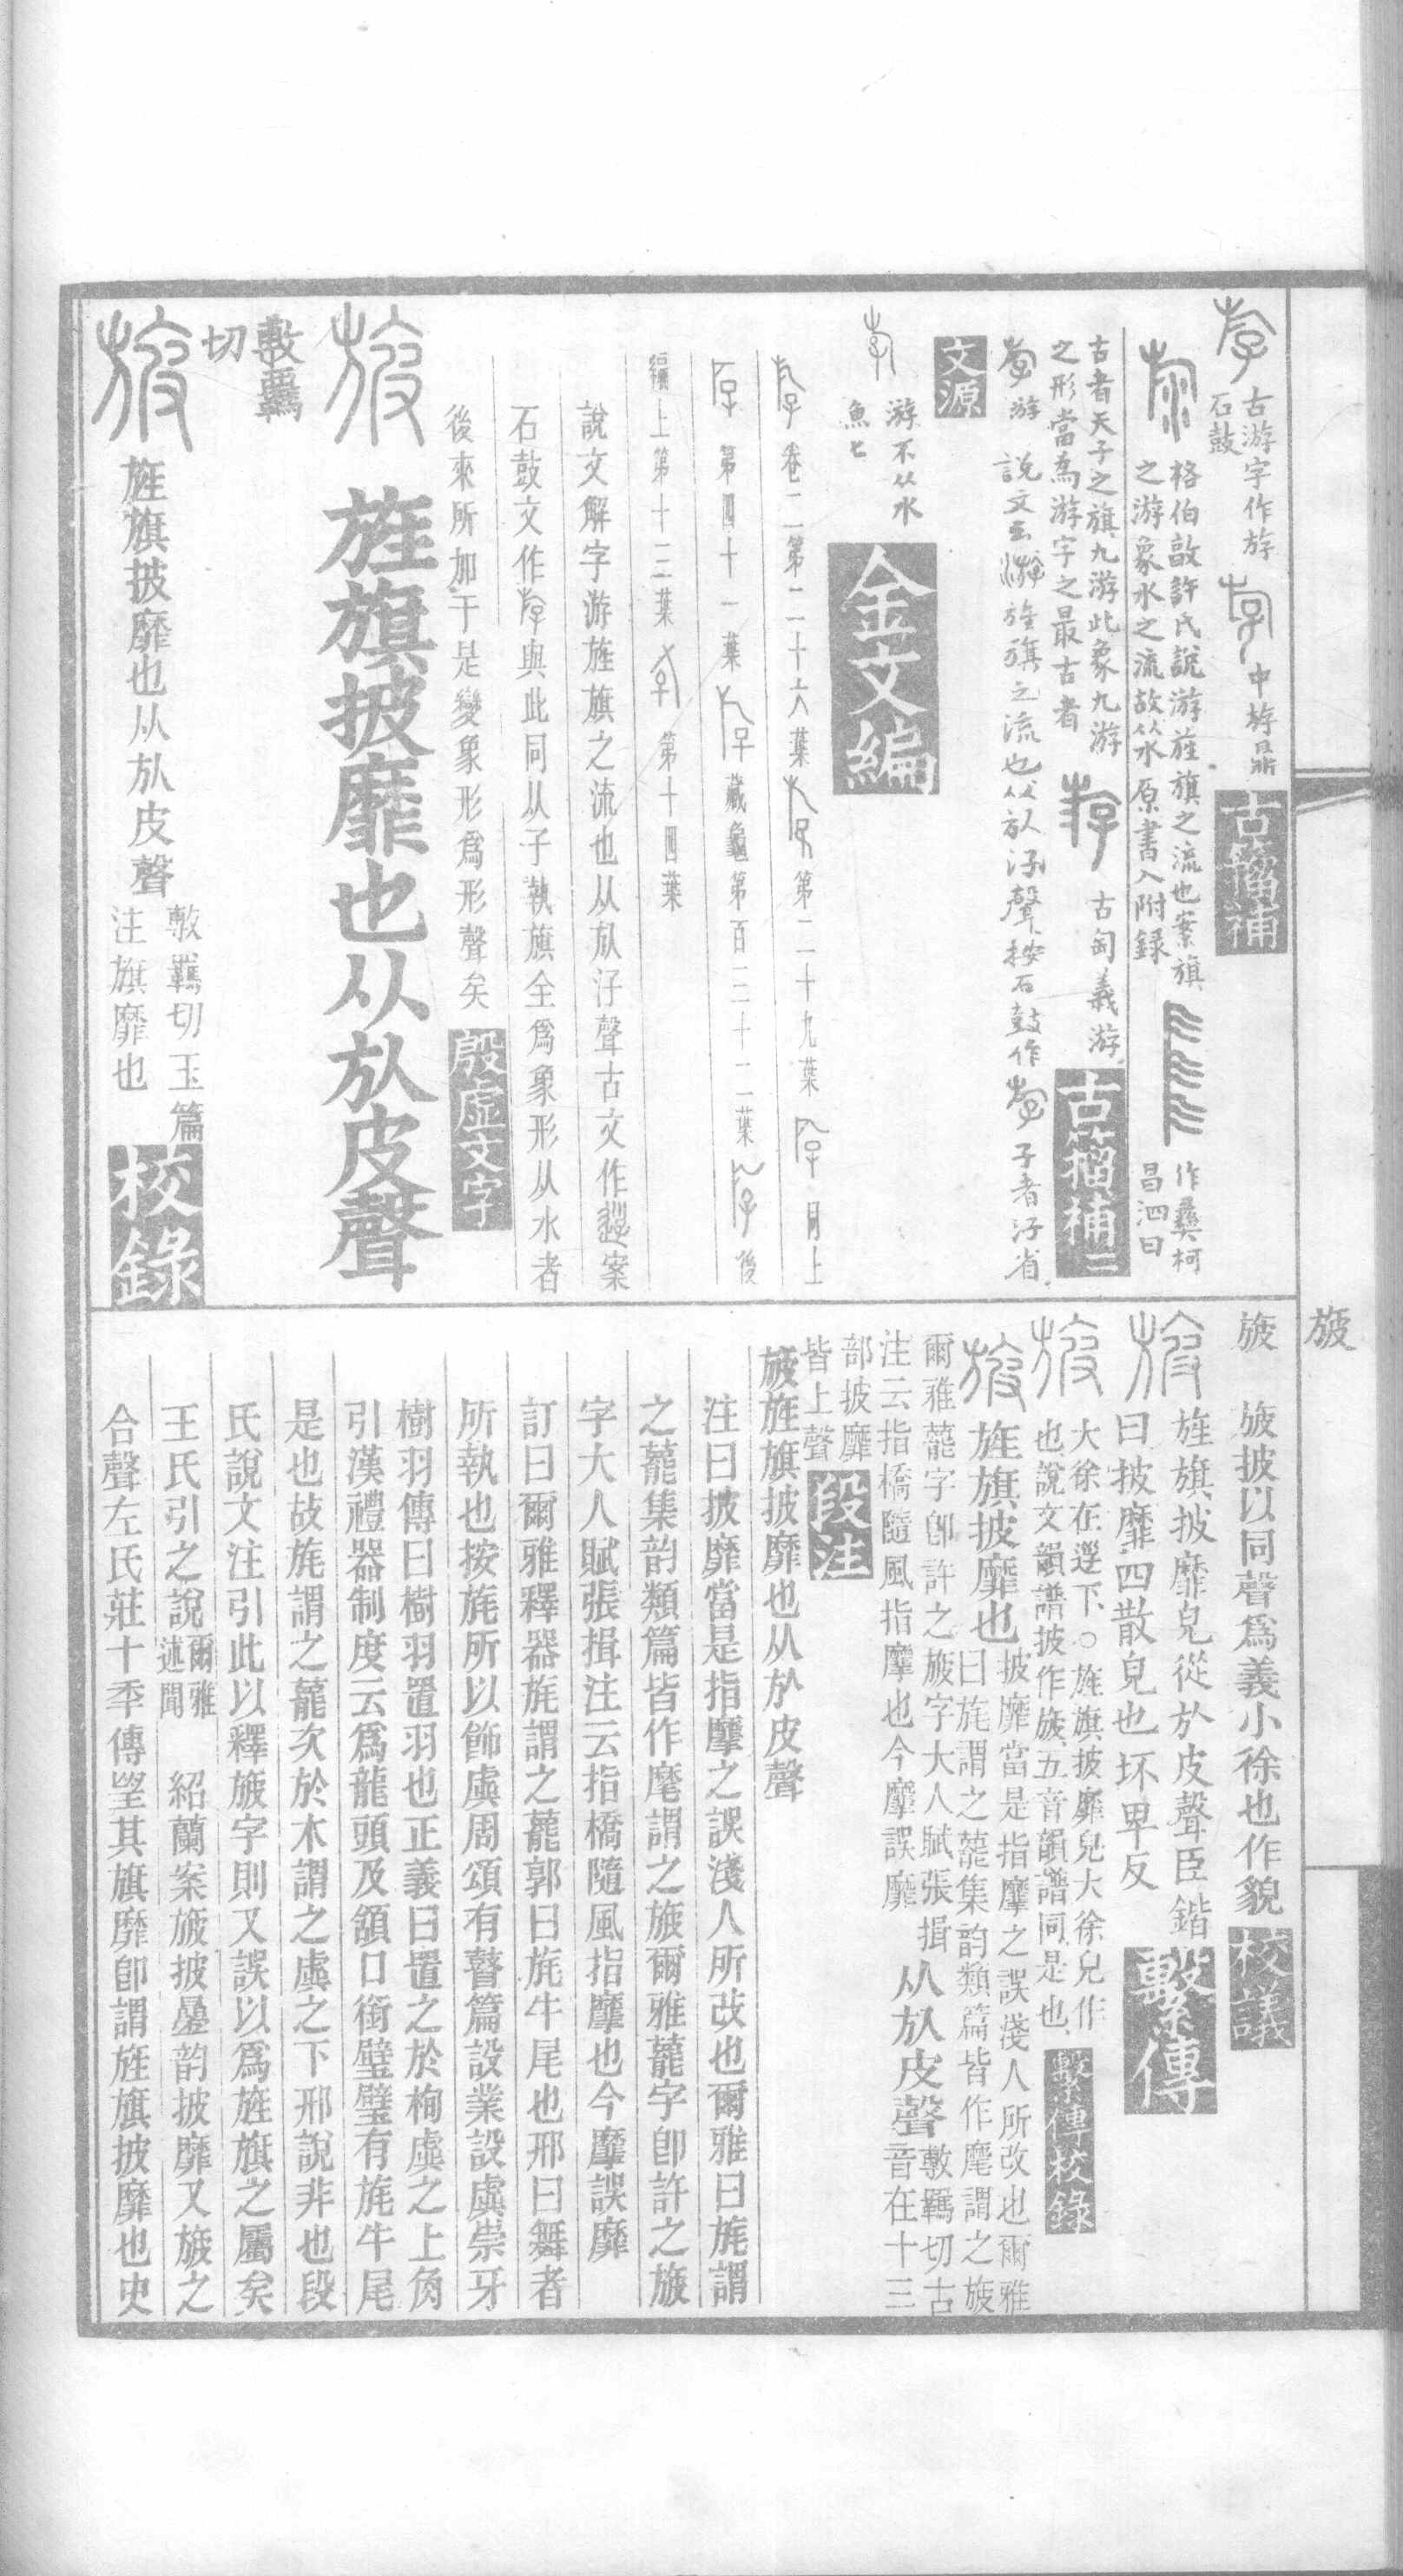 旇
古游字作斿
石鼓
中斿鼎
古籀補
格伯敦許氏說游旌旗之流也案旗
之游象水之流故从水原書入附錄
作彝柯
昌泗曰
古者天子之旗九游此象九游
之形當為游字之最古者
古匋義游
古籀補二
游
說文云游旌旗之流也从㫃汓聲按石鼓作
子者汓省
文源
游不从水
魚匕
金文編
卷二第二十六葉
第二十九葉
同上
第四十一葉
藏龜第百三十二葉
後
編上第十三葉
第十四葉
說文解字游旌旗之流也从㫃汓聲古文作
案
石鼓文作
與此同从子執旗全爲象形从水者
後來所加于是變象形爲形聲矣
殷虛文字
旌旗披靡也从㫃皮聲
敷羈
切
旌旗披靡也从㫃皮聲
敷羈切玉篇
注旗靡也
校錄
旇
旇披以同聲爲義小徐也作貌
校議
旌旗披靡皃從㫃皮聲臣鍇
曰披靡四散皃也坏卑反
繫傳
大徐在遊下○旌旗披靡皃大徐皃作
也說文韻譜披作旇五音韻譜同是也
繫傳校錄
旌旗披靡也
披靡當是指摩之誤淺人所改也爾雅
曰旄謂之藣集韵類篇皆作麾謂之旇
爾雅藣字卽許之旇字大人賦張揖
注云指橋隨風指摩也今摩誤靡
从㫃皮聲
敷羈切古
音在十三
部披靡
皆上聲
段注
旇旌旗披靡也从㫃皮聲
注曰披靡當是指摩之誤淺人所改也爾雅曰旄謂
之藣集韵類篇皆作麾謂之旇爾雅藣字卽許之旇
字大人賦張揖注云指橋隨風指摩也今摩誤靡
訂曰爾雅釋器旄謂之藣郭曰旄牛尾也邢曰舞者
所執也按旄所以飾虡周頌有瞽篇設業設虡崇牙
樹羽傳曰樹羽置羽也正義曰置之於栒虡之上角
引漢禮器制度云爲龍頭及頷口銜璧璧有旄牛尾
是也故旄謂之藣次於木謂之虡之下邢說非也段
氏說文注引此以釋旇字則又誤以爲旌旗之屬矣
王氏引之說
爾雅
述聞
紹蘭案旇披曡韵披靡又旇之
合聲左氏莊十年傳望其旗靡卽謂旌旗披靡也史